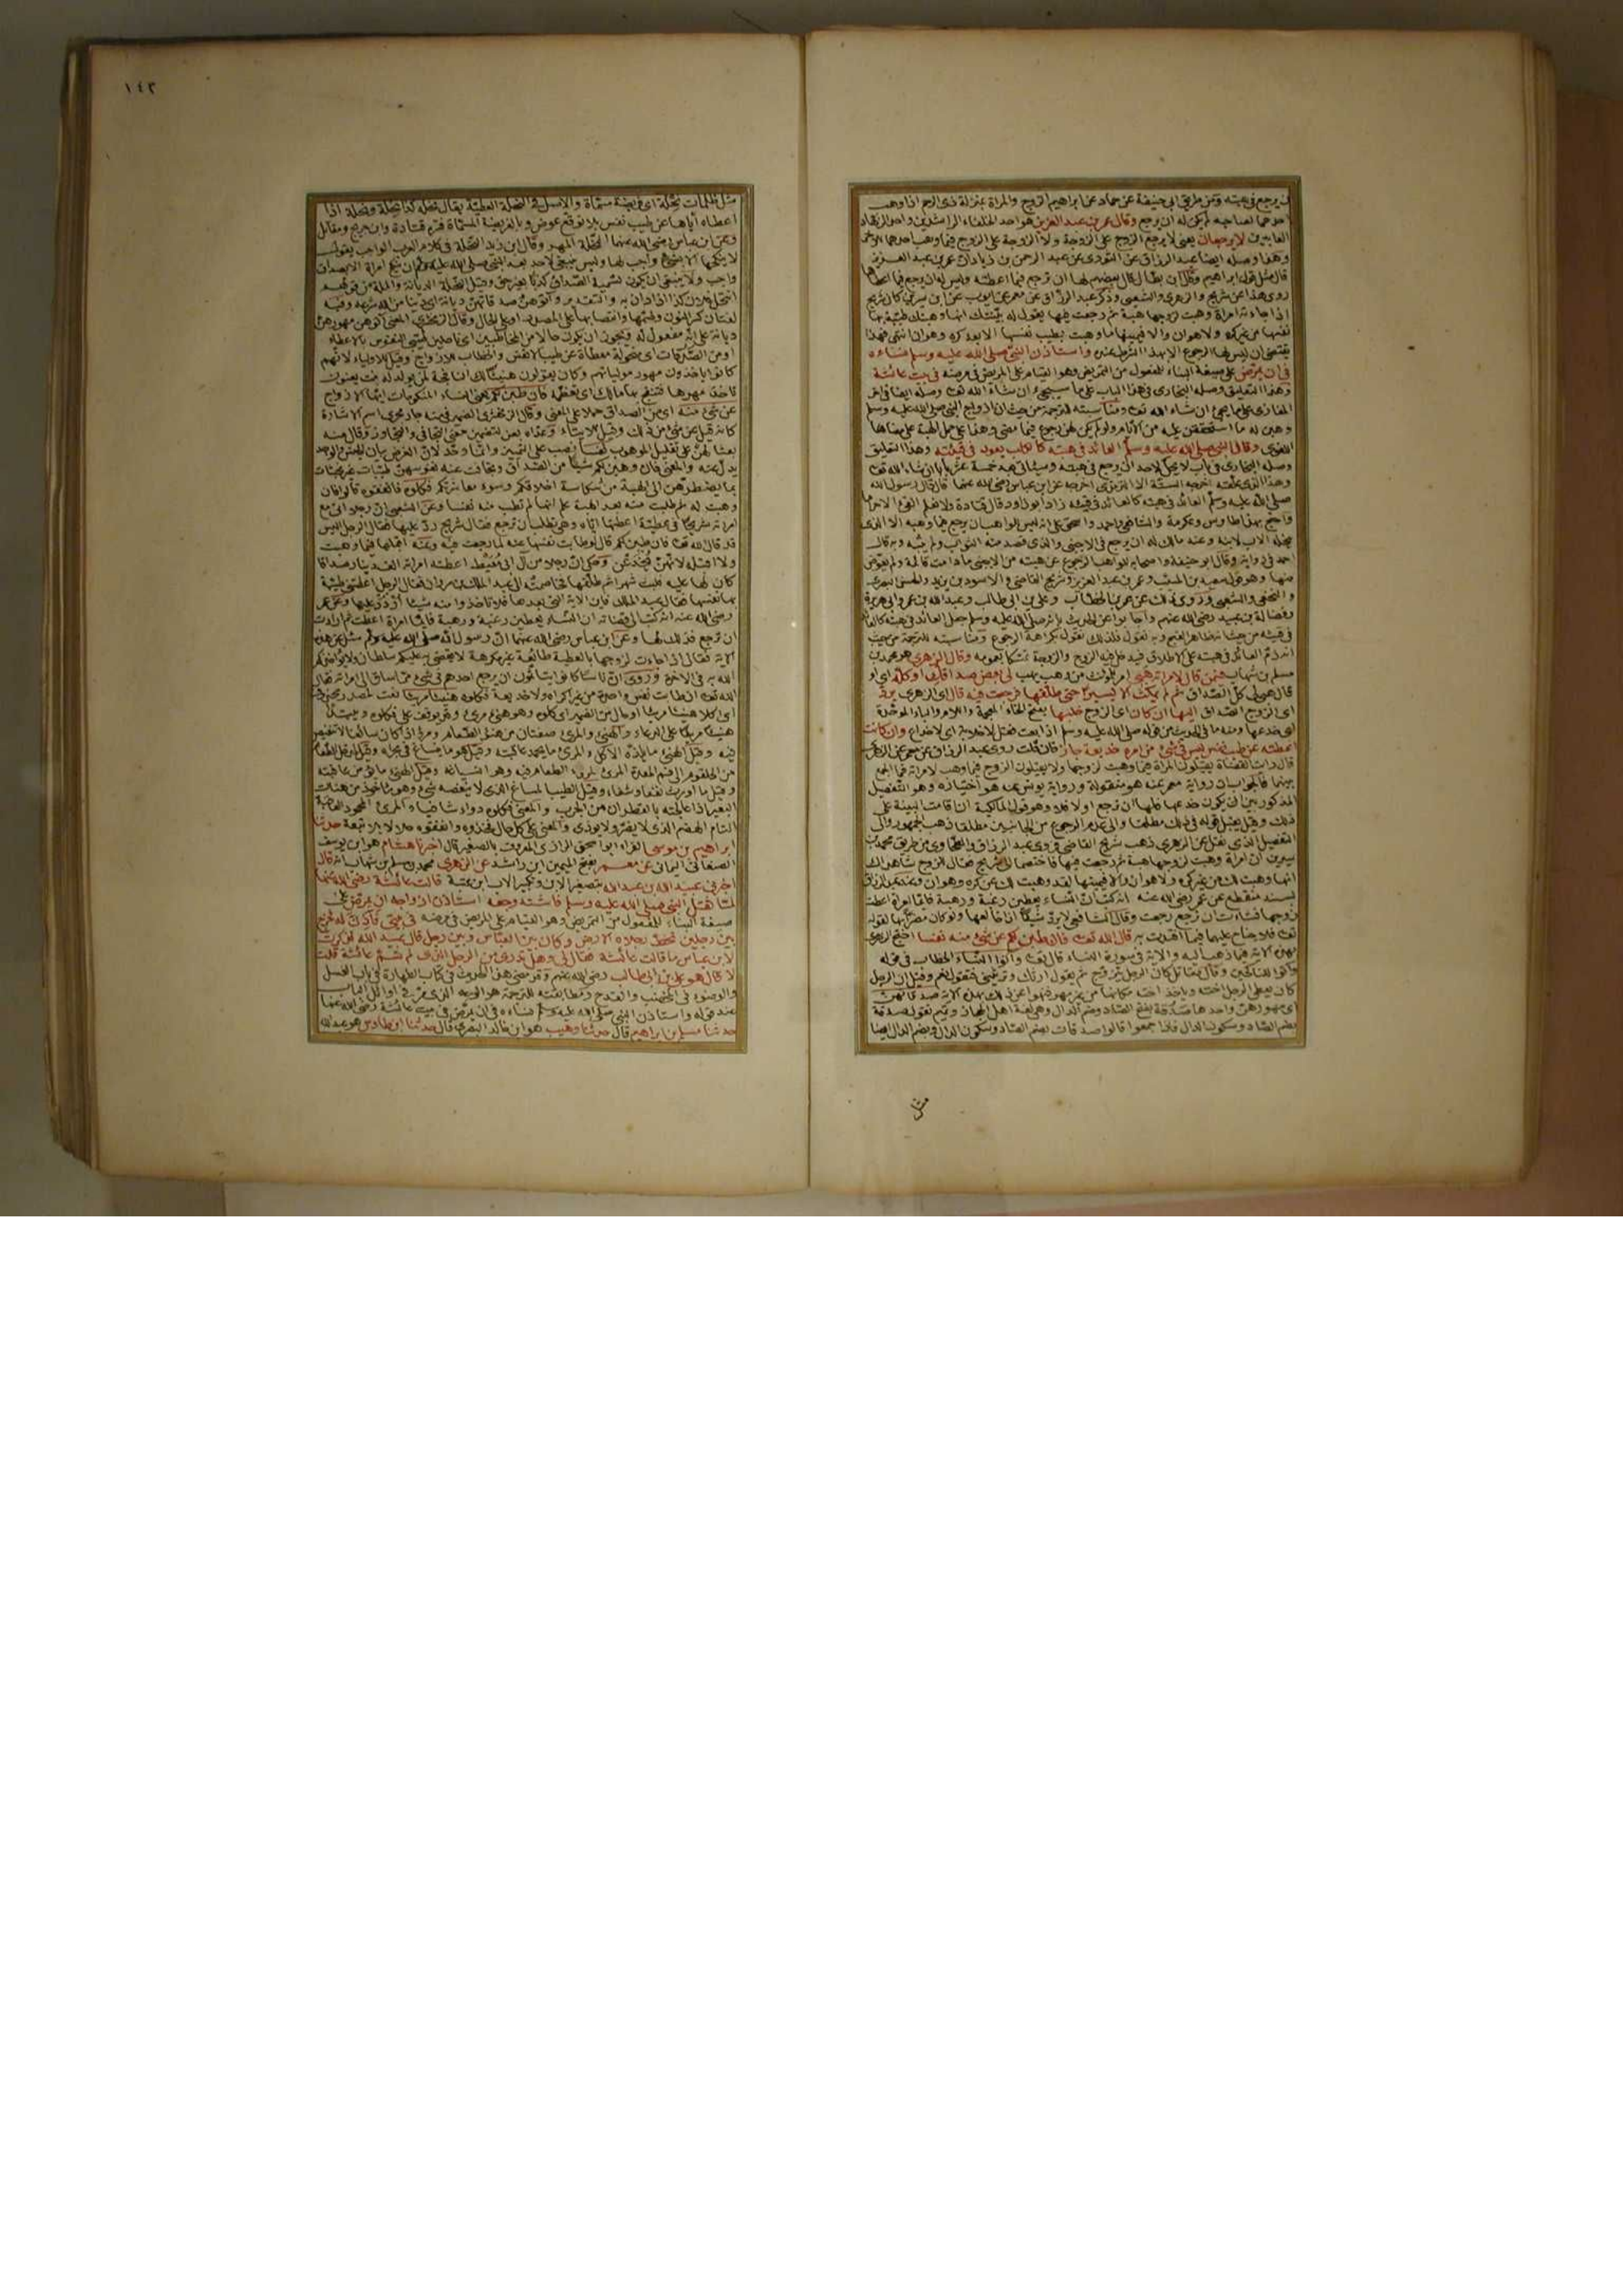 ان يرجع في هبته ومن طريق ابي حنيفة عن حماد عن ابراهيم الزوج والمراة بمنزلة ذى الرحم اذا وهب
احدهما لصاحبه لم يكن له ان يرجع وقال عمر بن عبد العزيز هو احد الخلفاء الراشدين واحد الزهاد
العابدين لا يرجعان يعنى لا يرجع الزوج على الزوجة ولا الزوجة على الزوج فيما وهب احدهما الاخر
وهذا وصله ايضا عبد الرزاق عن الثورى عن عبد الرحمن بن زياد ان عمر بن عبد العزيز
قال مثل قول ابراهيم وقال ابن بطال قال بعضهم لها ان ترجع فيما اعطته وليس له ان يرجع فيما اعطاها
روى هذا عن شريح والزهرى والشعبى وذكر عبد الرزاق عن معمر عن ايوب عن ابن سيرين كان شريح
اذا جاءته امراة وهبت لزوجها هبة ثم رجعت فيها يقول له بينتك انها وهبتك طيبة بها
نفسها من غير كره ولا هوان والا فيمينها ما وهبت بطيب نفسها الا بعد كره وهوان انتهى فهذا
يقتضى ان ليس لها الرجوع الا بهذا الشرط واستاذن النبي صلى الله عليه وسلم نساءه
في ان يمرض على صيغة البناء للمفعول من التمريض وهو القيام على المريض في مرضه في بيت عائشة
وهذا التعليق وصله البخارى في هذا الباب على ما سيجىء ان شاء الله تعالى وصله ايضا في اخر
المغازى على ما يجىء ان شاء الله تعالى ومناسبته للترجمة من حيث ان ازواج النبي صلى الله عليه وسلم
وهبن له ما استحققن عليه من الايام ولم يكن لهن رجوع فيما مضى وهذا على حمل الهبة على معناها
اللغوى وقال النبي صلى الله عليه وسلم العائد في هبته كالكلب يعود في قيئه وهذا التعليق
وصله البخارى في باب لا يحل لاحد ان يرجع في هبته وسيأتى بعد خمسة عشر بابا ان شاء الله تعالى
وهذا الذى علقه اخرجه الستة الا الترمذى اخرجه عن ابن عباس رضى الله عنهما قال قال رسول الله
صلى الله عليه وسلم العائد في هبته كالعائد في قيئه زاد ابو داود قال قتادة ولا نعلم القىء الا حراما
واحتج بهذا طاوس وعكرمة والشافعى واحمد واسحق على انه ليس للواهب ان يرجع فيما وهبه الا الذى
ينحله الاب لابنه وعند مالك له ان يرجع في الاجنبى والذى قصد منه الثواب ولم يثبه وبه قال
احمد في رواية وقال ابو حنيفة واصحابه للواهب الرجوع عن هبته من الاجنبى ما دامت قائمة ولم يعوض
منها وهو قول سعيد بن المسيب وعمر بن عبد العزيز وشريح القاضى والاسود بن يزيد والحسن البصرى
والنخعى والشعبى وروى ذلك عن عمر بن الخطاب وعلى بن ابى طالب وعبد الله بن عمر وابى هريرة
وفضالة بن عبيد رضى الله عنهم واجابوا عن الحديث بانه صلى الله عليه وسلم جعل العائد في هبته كالعائد
في قيئه من حيث انه ظاهر القبح وبه نقول فلذلك نقول بكراهة الرجوع ومناسبته للترجمة من حيث
انه ذم العائد في هبته على الاطلاق فيدخل فيه الزوج والزوجة تمسكا بعمومه وقال الزهرى هو محمد بن
مسلم بن شهاب فيمن قال لامراته هبى امر للمؤنث من وهب يهب لى بعض صداقك او كله اى او
قال هبى لى كل الصداق ثم لم يمكث الا يسيرا حتى طلقها فرجعت فيه قال اى الزهرى يرد
اى الزوج الصداق اليها ان كان اى الزوج خلبها بفتح الخاء المعجمة واللام والباء الموحدة
اى خدعها ومنه ما في الحديث من قوله صلى الله عليه وسلم اذا بعت فقل لا خلابة اى لا خداع وان كانت
اعطته عن طيب نفس ليس في شىء من امره خديعة جاز فان قلت روى عبد الرزاق عن معمر عن الزهرى
قال رايت القضاة يقيلون المراة فيما وهبت لزوجها ولا يقيلون الزوج فيما وهب لامراته فما الجمع
بينهما فالجواب ان رواية معمر عنه هو منقولة ورواية يونس عنه هو اختياره وهو التفصيل
المذكور بين ان يكون خدعها فلها ان ترجع او لا فلا وهو قول المالكية ان اقامت البينة على
ذلك وقيل يقبل قولها في ذلك مطلقا والى عدم الرجوع من الجانبين مطلقا ذهب الجمهور والى
التفصيل الذى نقل عن الزهرى ذهب شريح القاضى فروى عبد الرزاق والطحاوى من طريق محمد بن
سيرين ان امراة وهبت لزوجها هبة ثم رجعت فيها فاختصما الى شريح فقال للزوج شاهداك
انها وهبت لك من غير كره ولا هوان والا فيمينها لقد وهبت لك عن كره وهوان وعند عبد الرزاق
بسند منقطع عن عمر رضى الله عنه انه كتب ان النساء يعطين رغبة ورهبة فايما امراة اعطت
زوجها فشاءت ان ترجع رجعت وقال الشافعى لا يرد شيئا اذا خالعها ولو كان مضرا بها لقوله
تعالى فلا جناح عليهما فيما افتدت به قال الله تعالى فان طبن لكم عن شىء منه نفسا احتج الزهرى
بهذه الاية فيما ذهب اليه والاية في سورة النساء قال تعالى وآتوا النساء الخطاب في قوله
وآتوا للناكحين وقال مقاتل كان الرجل يتزوج ثم يقول ارثك وترثينى فتقول نعم وقيل ان الرجل
كان يعطى الرجل اخته وياخذ اخته مكانها من غير مهر فنهوا عن ذلك بهذه الاية صدقاتهن
اى مهورهن واحدها صدقة بفتح الصاد وضم الدال وهى لغة اهل الحجاز وتميم تقول صدقة
بضم الصاد وسكون الدال فاذا جمعوا قالوا صدقات بضم الصاد وسكون الدال وبضم الدال ايضا
مثل
١٤٢
مثل ظلمات نحلة اى فريضة مسماة والاصل في النحلة العطية يقال نحله كذا نحلة ونحلة اذا
اعطاه اياها عن طيب نفس بلا توقع عوض وبالفريضة المسماة فسره قتادة وابن جريج ومقاتل
وعن ابن عباس رضى الله عنهما النحلة المهر وقال ابن زيد النحلة في كلام العرب الواجب يقول
لا ينكحها الا بشىء واجب لها وليس ينبغى لاحد بعد النبى صلى الله عليه وسلم ان ينكح امراة الا بصداق
واجب ولا ينبغى ان يكون تسمية الصداق كذبا بغير حق وقيل النحلة الديانة والملة من قولهم
انتحل فلان كذا اذا دان به والتقدير وآتوهن صدقاتهن ديانة اى دينا من الله شرعه وفيه
لغتان كسر النون وضمها وانتصابها على المصدر او على الحال وقال الزمخشرى المعنى آتوهن مهورهن
ديانة على انه مفعول له ويجوز ان يكون حالا من المخاطبين اى ناحلين طيبى النفوس بالاعطاء
او من الصدقات اى منحولة معطاة عن طيب الانفس والخطاب للازواج وقيل للاولياء لانهم
كانوا ياخذون مهور مولياتهم وكان يقولون هنيئا لك النافجة لمن يولد له بنت يعنون
تاخذ مهورها فتنفج بها مالك اى تعظمه فان طبن لكم يعنى النساء المنكوحات ايها الازواج
عن شىء منه اى من الصداق حملا على المعنى وقال الزمخشرى الضمير في منه جار مجرى اسم الاشارة
كانه قيل عن شىء من ذلك وقيل للايتاء وعداه بعن لتضمين معنى التجافى والتجاوز وقال منه
بعثا لهن على تقليل الموهوب نفسا نصب على التمييز وانما وحد لان الغرض بيان الجنس والواحد
يدل عليه والمعنى فان وهبن لكم شيئا من الصداق وتجافت عنه نفوسهن طيبات غير مخبثات
بما يضطرهن الى الهبة من شكاسة اخلاقكم وسوء معاشرتكم فكلوه فانفقوه قالوا فان
وهبت له ثم طلبت منه بعد الهبة علم انها لم تطب منه نفسا وعن الشعبى ان رجلا اتى مع
امراته شريحا في عطية اعطتها اياه وهى تطلب ان ترجع فقال شريح رد عليها فقال الرجل اليس
قد قال الله تعالى فان طبن لكم قال لو طابت نفسها عنه لما رجعت فيه وعنه اقيلها فيما وهبت
ولا اقيله لانهن يخدعن وحكى ان رجلا من آل ابى معيط اعطته امراته الف دينار صداقا
كان لها عليه فلبث شهرا ثم طلقها فخاصمته الى عبد الملك بن مروان فقال الرجل اعطتنى طيبة
بها نفسها فقال عبد الملك فاين الاية التى بعدها فلا تاخذوا منه شيئا اردد عليها وعن عمر
رضى الله عنه انه كتب الى قضاته ان النساء يعطين رغبة ورهبة فايما امراة اعطت ثم ارادت
ان ترجع فذلك لها وعن ابن عباس رضى الله عنهما ان رسول الله صلى الله عليه وسلم سئل عن هذه
الاية فقال اذا جادت لزوجها بالعطية طائعة غير مكرهة لا يقضى به عليكم سلطان ولا يؤاخذكم
الله به في الاخرة وروى ان ناسا كانوا يتاثمون ان يرجع احدهم في شىء مما ساق الى امراته فقال
الله تعالى ان طابت نفس واحدة من غير اكراه ولا خديعة فكلوه هنيئا مريئا نعت لمصدر محذوف
اى اكلا هنيئا مريئا او حال من الضمير اى كلوه وهو هنىء مرىء وقد يوقف على فكلوه ويبتدأ
هنيئا مريئا على الدعاء والهنىء والمرىء صفتان من هنؤ الطعام ومرؤ اذا كان سائغا لا تنغيص
فيه وقيل الهنىء ما يلذه الاكل والمرىء ما يحمد عاقبته وقيل هو ما ينساغ في مجراه وقيل لمدخل الطعام
من الحلقوم الى فم المعدة المرىء لمروء الطعام فيه وهو انسياغه وقيل الهنىء ما امن عاقبته
وقيل ما اورث نفعا وشفاء وقيل الطيب المساغ الذى لا ينغصه شىء وهو ماخوذ من هنات
البعير اذا عالجته بالقطران من الجرب والمعنى فكلوه دواء شافيا والمرىء المحمود العاقبة
التام الهضم الذى لا يضر ولا يوذى والمعنى على كل حال فخذوه وانفقوه حلالا بلا تبعة حدثنا
ابراهيم بن موسى الفراء ابو اسحق الرازى المعروف بالصغير قال اخبرنا هشام هو ابن يوسف
الصنعانى اليمانى عن معمر بفتح الميمين ابن راشد عن الزهرى محمد بن مسلم بن شهاب انه قال
اخبرنى عبيد الله بن عبد الله بتصغير الابن وتكبير الاب ابن عتبة قالت عائشة رضى الله عنها
لما ثقل النبى صلى الله عليه وسلم فاشتد وجعه استاذن ازواجه ان يمرض على
صيغة البناء للمفعول من التمريض وهو القيام على المريض في مرضه في بيتى فاذن له فخرج
بين رجلين تخط رجلاه الارض وكان بين العباس وبين رجل قال عبيد الله فذكرت
لابن عباس ما قالت عائشة فقال لى وهل تدرى من الرجل الذى لم تسم عائشة قلت
لا قال هو على بن ابى طالب رضى الله عنهم وقد مضى هذا الحديث في كتاب الطهارة في باب الغسل
والوضوء في المخضب والقدح ومطابقته للترجمة هو الوجه الذى مر في اوائل الباب
عند قوله واستاذن النبى صلى الله عليه وسلم نساءه في ان يمرض في بيت عائشة رضى الله عنها
حدثنا مسلم بن ابراهيم قال حدثنا وهيب هو ابن خالد البصرى قال حدثنا ابن طاوس هو عبد الله